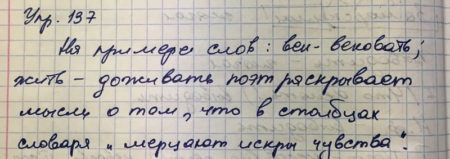 Упр. 137
На примере слов: век - вековать;
жить - доживать поэт раскрывает
мысль о том, что в столбцах
словаря „мерцают искры чувства".